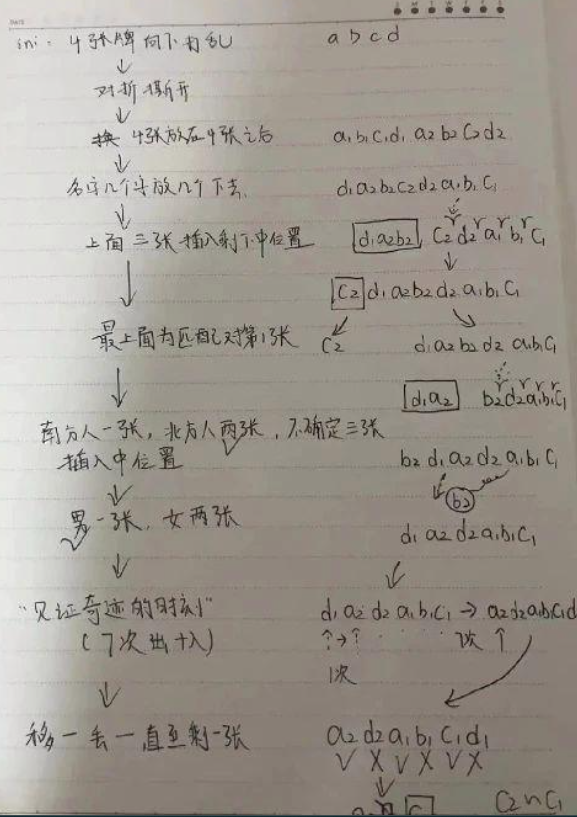 ini: 4张牌向下打乱 a b c d
对折撕开
4张放在4张之后 a₁b₁c₁d₁ a₂b₂c₂d₂
名字几个字放几个下去 d₁a₂b₂c₂d₂a₁b₁c₁
上面三张插入剩下中位置 d₁a₂b₂ c₂d₂a₁b₁c₁
c₂ d₁a₂b₂d₂a₁b₁c₁
最上面为匹配对第1张 c₂ d₁a₂b₂d₂a₁b₁c₁
d₁a₂ b₂d₂a₁b₁c₁
南方人一张,北方人两张,不确定三张
插入中位置 b₂d₁a₂d₂a₁b₁c₁
b₂
男一张,女两张
d₁a₂d₂a₁b₁c₁
"见证奇迹的时刻" d₁a₂d₂a₁b₁c₁→a₂d₂a₁b₁c₁d₁
(7次出十入) 7次
1次
移一丢一直至剩一张 a₂d₂a₁b₁c₁d₁
✓×✓×✓×
c₂ n c₁